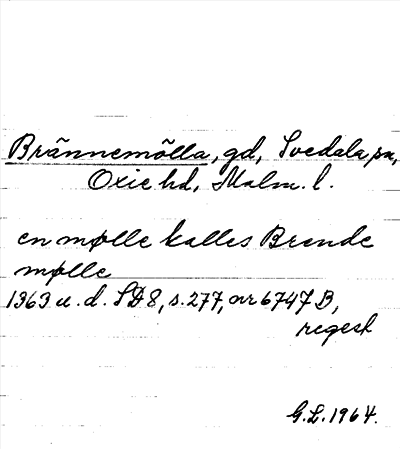 Brännemölla, gd, Svedala sn,
Oxie hd, Malm. l.
en mølle kalles Brende
mølle
1363 u. d. SD 8, s. 277, nr 6747 B,
regest
G.L. 1964.